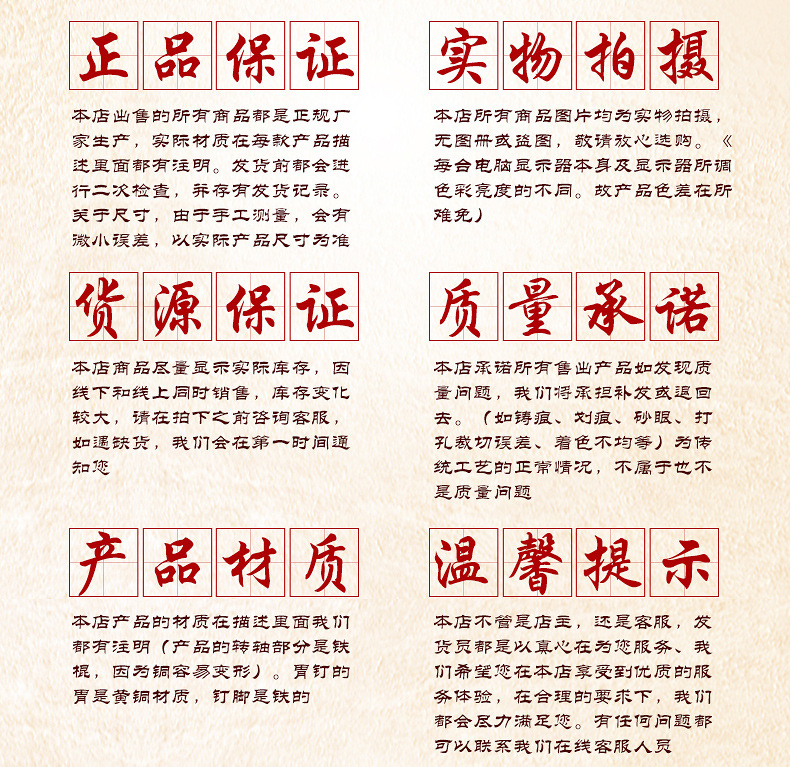 正品保证
本店出售的所有商品都是正规厂
家生产，实际材质在每款产品描
述里面都有注明。发货前都会进
行二次检查，并存有发货记录。
关于尺寸，由于手工测量，会有
微小误差，以实际产品尺寸为准
实物拍摄
本店所有商品图片均为实物拍摄，
无图册或盗图，敬请放心选购。《
每台电脑显示器本身及显示器所调
色彩亮度的不同。故产品色差在所
难免）
货源保证
本店商品尽量显示实际库存，因
线下和线上同时销售，库存变化
较大，请在拍下之前咨询客服，
如遇缺货，我们会在第一时间通
知您
质量承诺
本店承诺所有售出产品如发现质
量问题，我们将承担补发或退回
去。（如铸痕、划痕、砂眼、打
孔裁切误差、着色不均等）为传
统工艺的正常情况，不属于也不
是质量问题
产品材质
本店产品的材质在描述里面我们
都有注明（产品的转轴部分是铁
棍，因为铜容易变形）。胃钉的
胃是黄铜材质，钉脚是铁的
温馨提示
本店不管是店主，还是客服，发
货员都是以真心在为您服务、我
们希望您在本店享受到优质的服
务体验，在合理的要求下，我们
都会尽力满足您。有任何问题都
可以联系我们在线客服人员